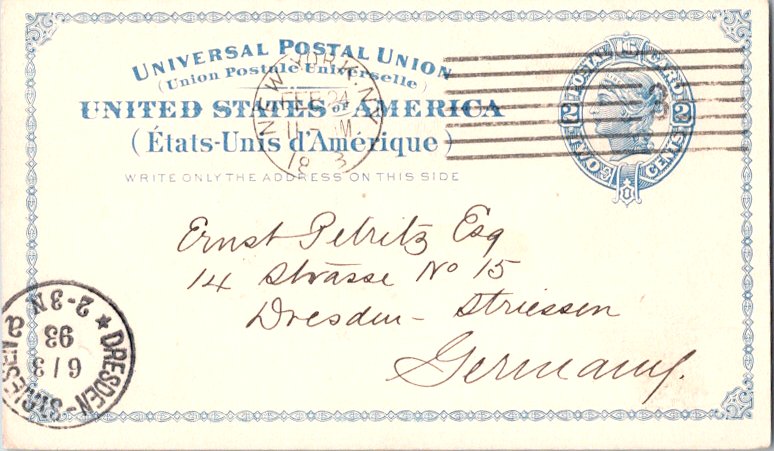 UNIVERSAL POSTAL UNION
(Union Postale Universelle)
UNITED STATES OF AMERICA
(États-Unis d'Amérique)
WRITE ONLY THE ADDRESS ON THIS SIDE
NEW YORK, N.Y.
FEB 24
11- M
18 3
POSTAL CARD
2 2
TWO CENTS
US
Ernst Petritz Esq
14 Strasse No 15
Dresden - Striessen
Germany.
DRESDEN-STRIESEN
6/3
93
2-3N